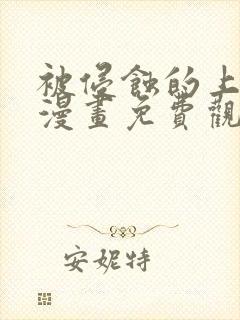 被侵蝕的上
漫畫免費觀
安妮特